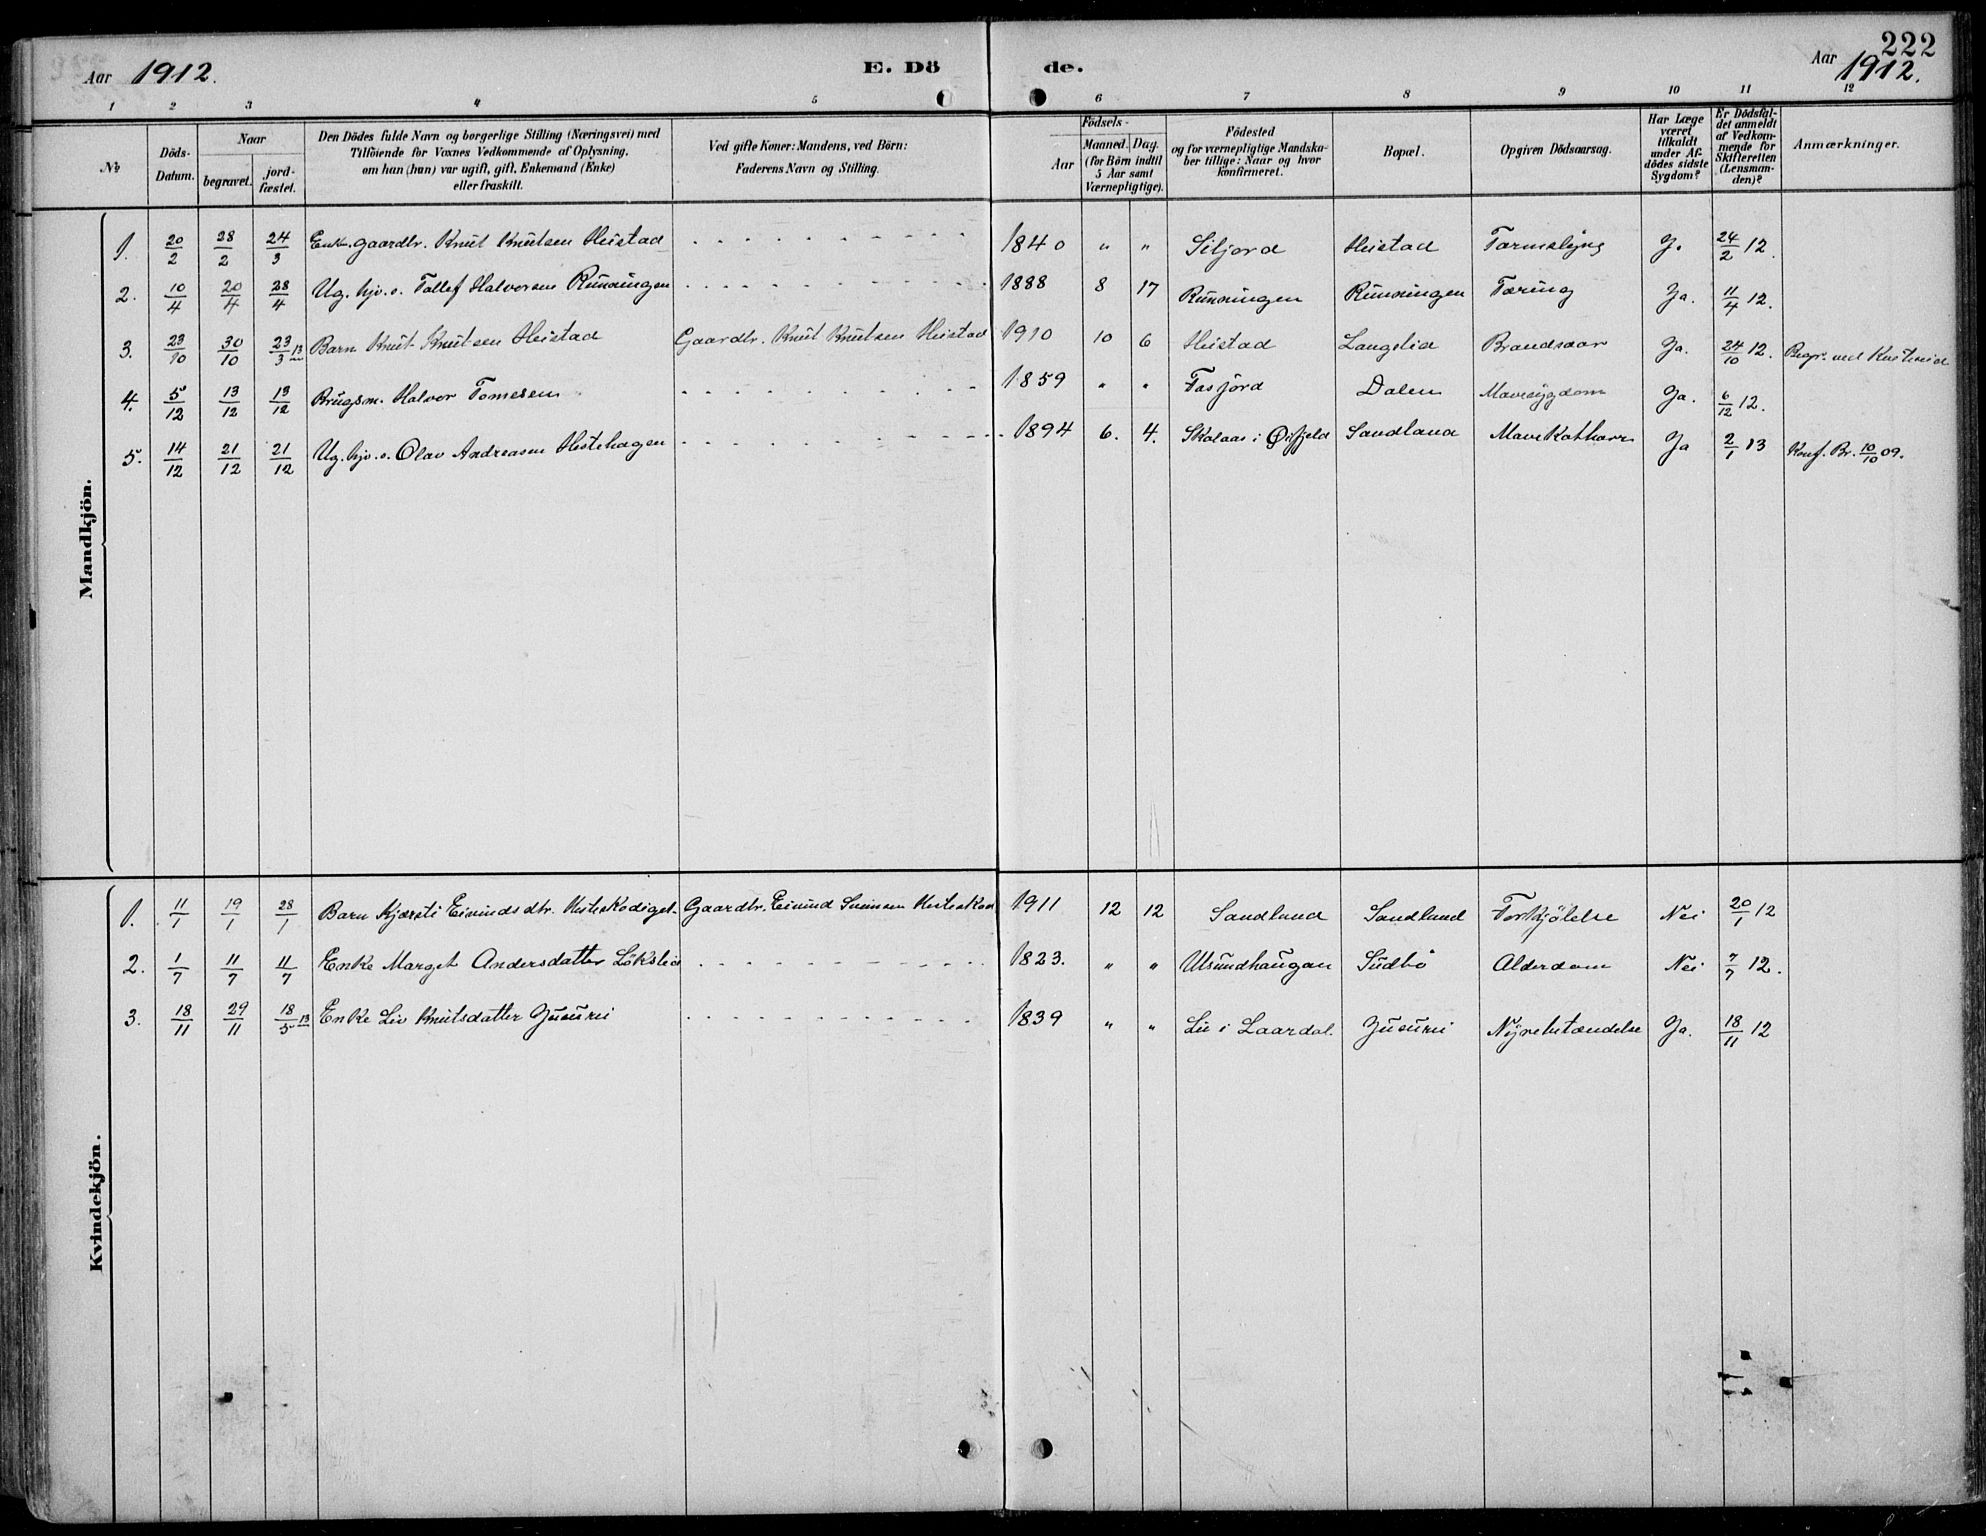 222
Aar 1912. E. Dö de. Aar 1912.
1 2 3 4 5 6 7 8 9 10 11 12
№ Döds-Datum. Naar begravet. jord-fæstet. Den Dödes fulde Navn og borgerlige Stilling (Næringsvei) med Tilföiende for Voxnes Vedkommende af Oplysning, om han (hun) var ugift, gift, Enkemand (Enke) eller fraskilt. Ved gifte Koner: Mandens, ved Börn: Faderens Navn og Stilling. Födsels- Aar Maaned. Dag. (for Börn indtil 5 Aar samt Værnepligtige). Födested og for værnepligtige Mandskaber tillige: Naar og hvor konfirmeret. Bopæl. Opgiven Dödsaarsag. Har Læge været tilkaldt under Afdödes sidste Sygdom? Er Dödsfaldet anmeldt af Vedkommende for Skifteretten (Lensmanden)? Anmærkninger.
Mandkjön.
1. 20/2 28/2 24/3 Enk. gaardbr. Knut Knutsen Heistad 1840 " " Siljord Heistad Tarmslyng J. 24/2 12.
2. 10/4 20/4 28/4 Ug. hjv. s. Tallef Halvorsen Runningen 1888 8 17 Runningen Runningen Tæring Ja. 11/4 12.
3. 23/10 30/10 23/3 13 Barn Knut Knutsen Heistad Gaardbr. Knut Knutsen Heistad 1910 10 6 Heistad Langelid Brandsaar Ja. 24/10 12. Begr. ved
4. 5/12 13/12 13/12 Brugsm. Halvor Tomesen 1859 " " Dalen Mavesygdom Ja. 6/12 12.
5. 14/12 21/12 21/12 Ug. hjv. s. Olav Andreasen Hestehagen 1894 6. 4. Skalaas i Sandland Mavekatharr Ja 2/1 13 Konf. Br. 10/10 09.
Kvindekjön.
1. 11/1 19/1 28/1 Barn Kjærsti Eivindsdtr. Gaardbr. Eivind 1911 12 12 Sandland Sandland Forkjölelse Nei 20/1 12
2. 1/7 11/7 11/7 Enke Marget Andersdatter Løkslid 1823. " " Utsundhaugan Sudbø Alderdom Nei 7/7 12.
3. 18/11 29/11 18/5 13 Enke Liv Knutsdatter Jusurei 1839 " " Lii i Laardal. Jusurei Nyrebetændelse Ja. 18/11 12